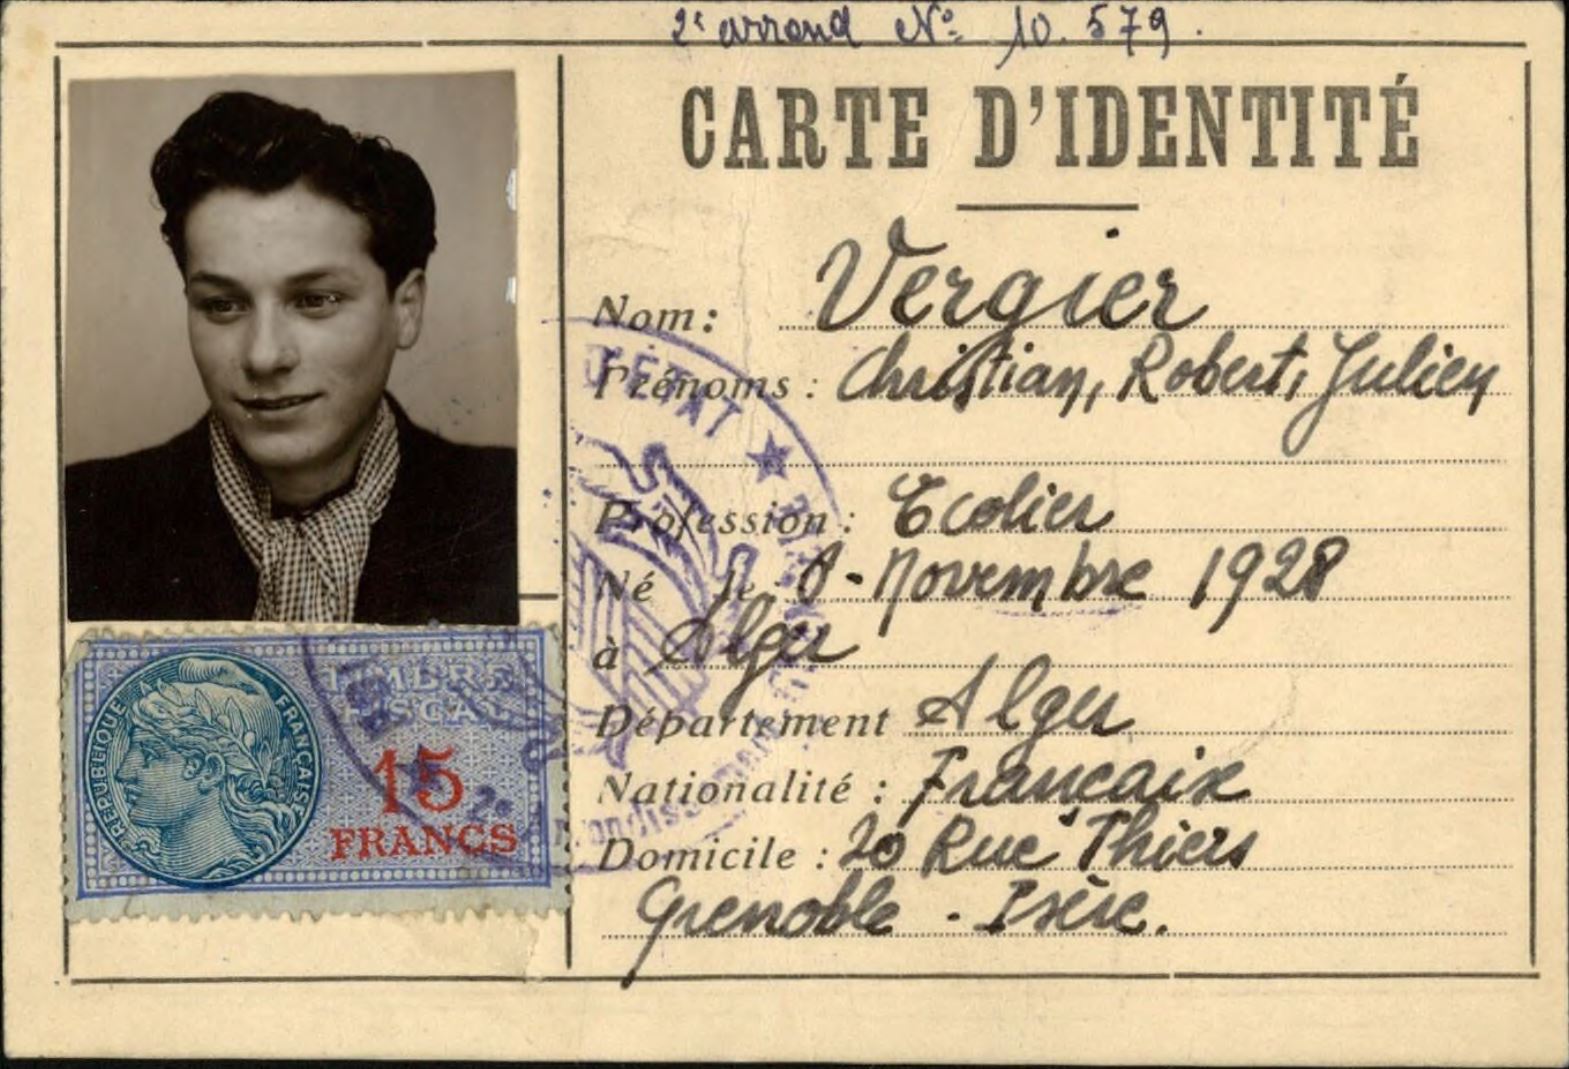 2e arrond No 10.579.
CARTE D'IDENTITÉ
Nom: Vergier
Prénoms : Christian, Robert, Julien
Profession : Ecolier
Né le 8 - Novembre 1928
à Alger
Département Alger
Nationalité : Française
Domicile : 20 Rue Thiers
Grenoble - Isère.
D'ÉTAT ★
2e arrondissement
TIMBRE
FISCAL
RÉPUBLIQUE FRANÇAISE
15
FRANCS